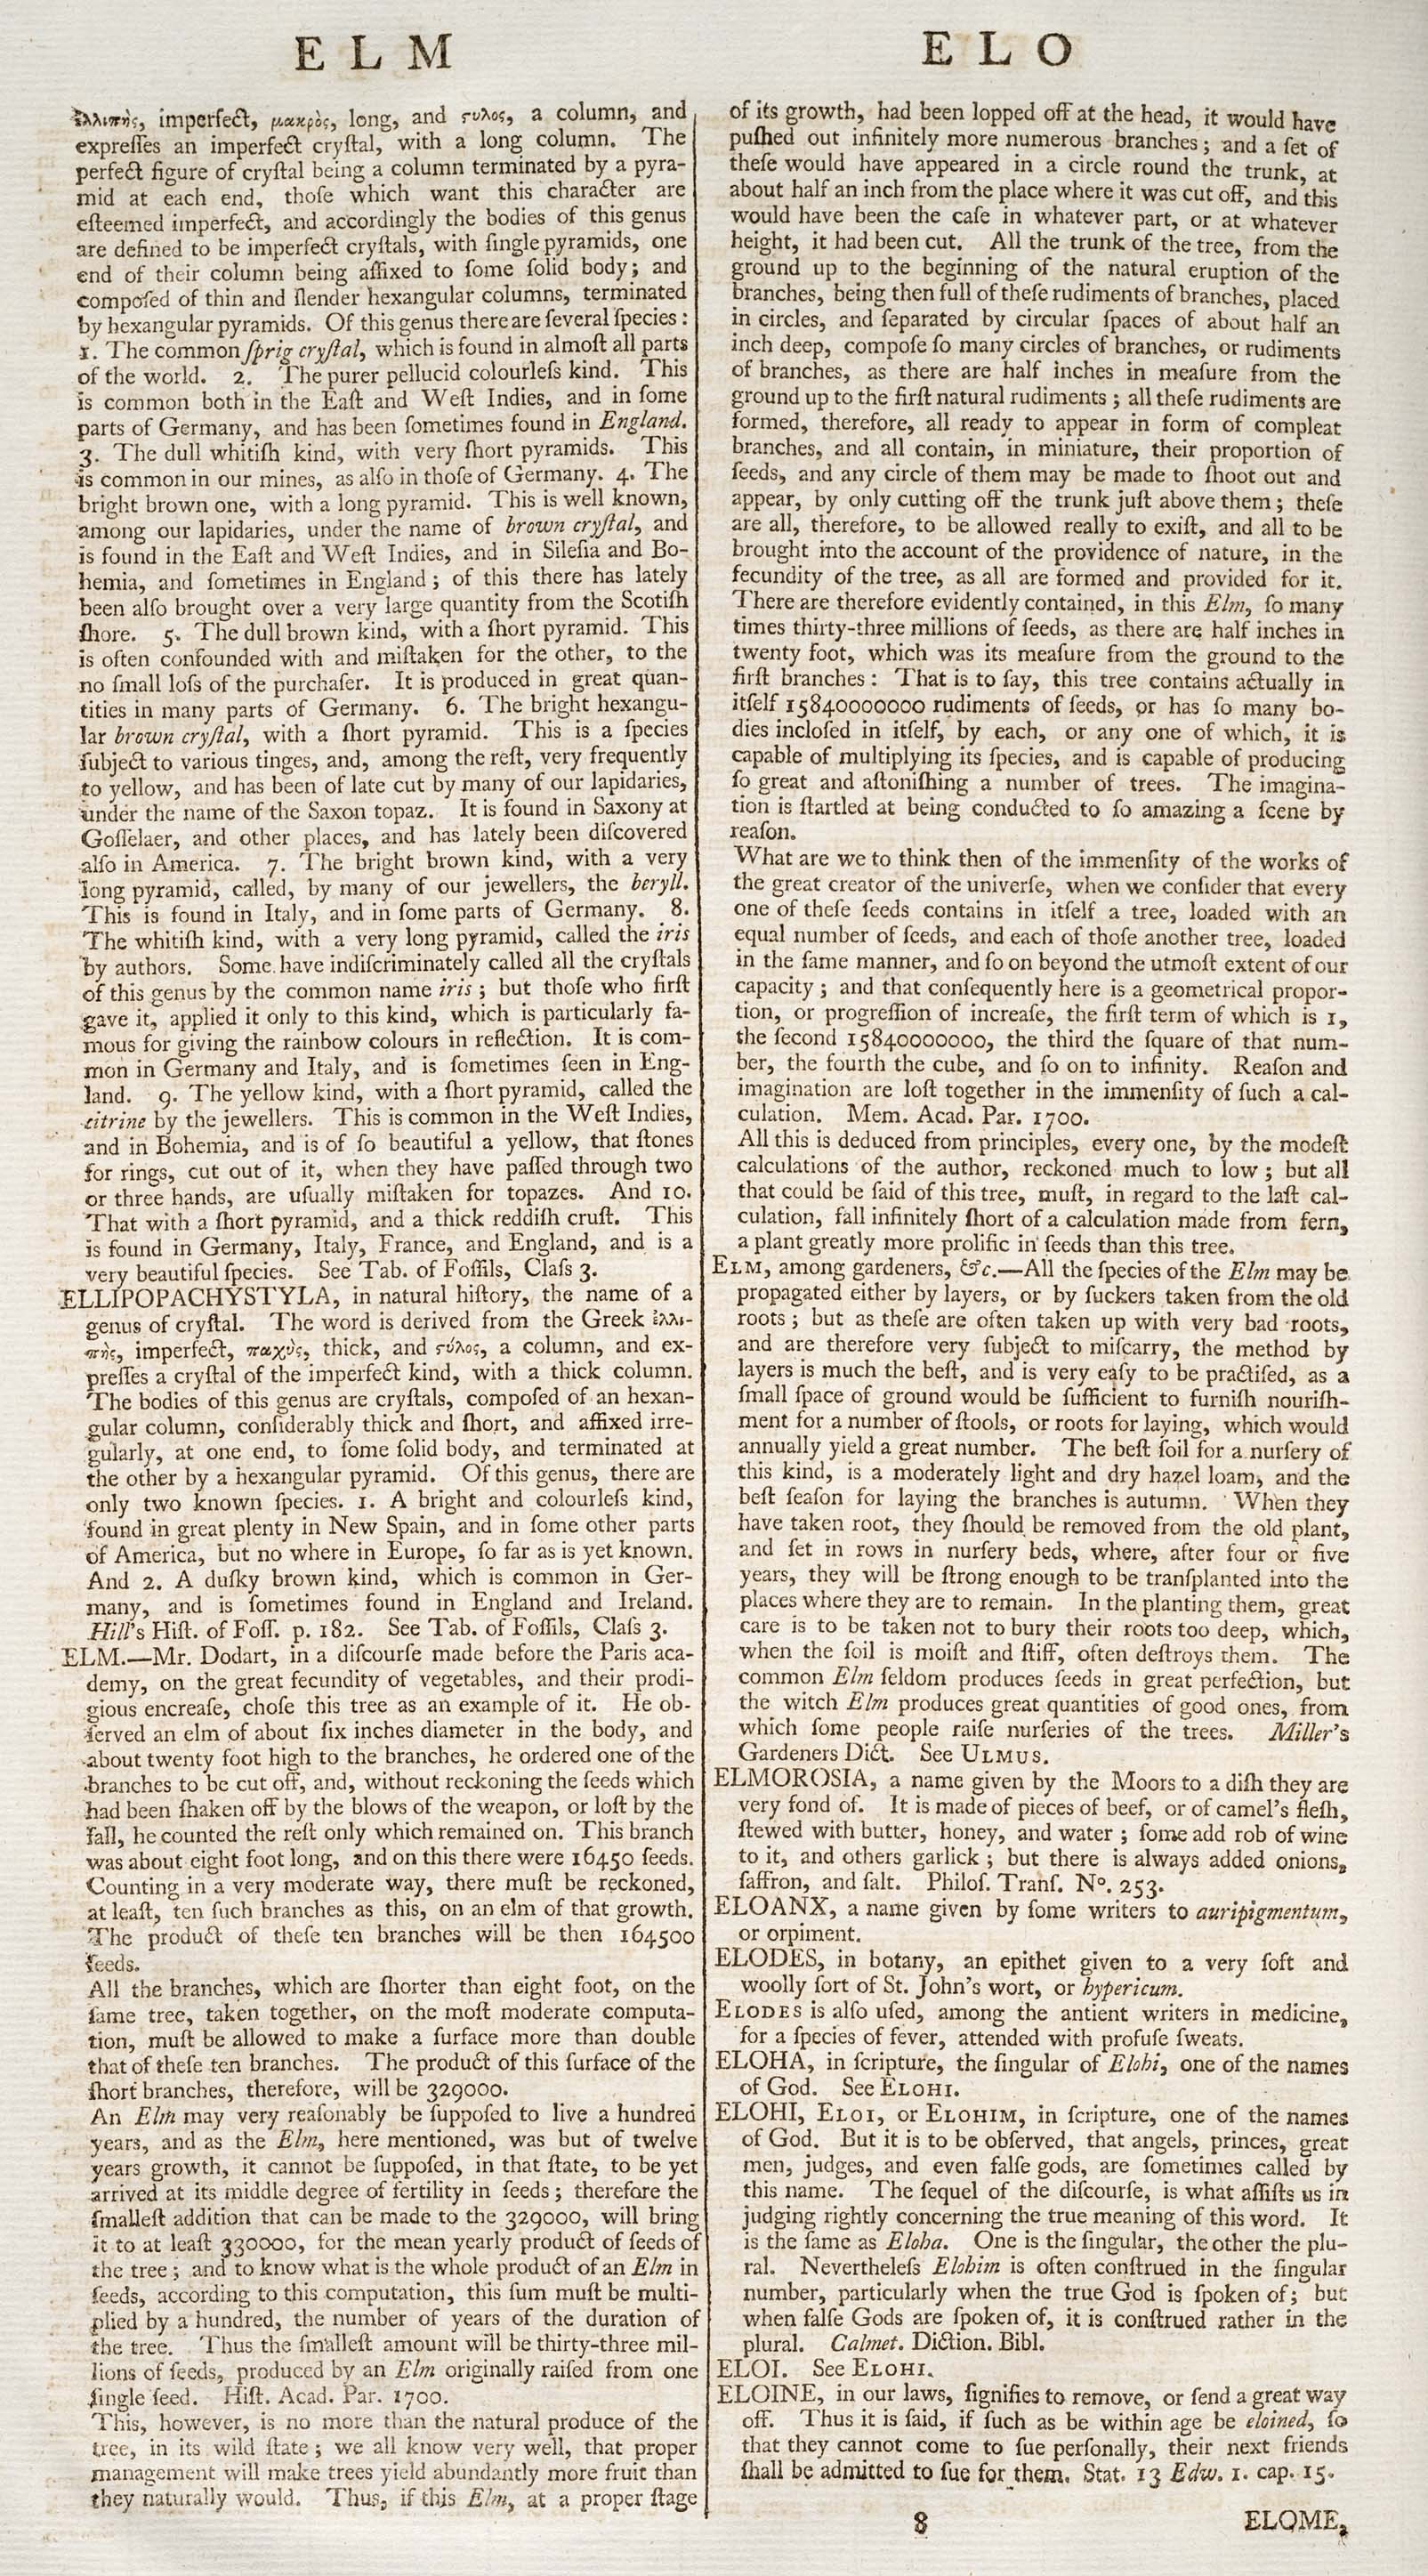 ELM
ἐλλιπὴς, imperfect, μακρὸς, long, and ϛυλος, a column, and
expreſſes an imperfect cryſtal, with a long column. The
perfect figure of cryſtal being a column terminated by a pyra-
mid at each end, thoſe which want this character are
eſteemed imperfect, and accordingly the bodies of this genus
are defined to be imperfect cryſtals, with ſingle pyramids, one
end of their column being affixed to ſome ſolid body; and
compoſed of thin and ſlender hexangular columns, terminated
by hexangular pyramids. Of this genus there are ſeveral ſpecies:
1. The common ſprig cryſtal, which is found in almoſt all parts
of the world. 2. The purer pellucid colourleſs kind. This
is common both in the Eaſt and Weſt Indies, and in ſome
parts of Germany, and has been ſometimes found in England.
3. The dull whitiſh kind, with very ſhort pyramids. This
is common in our mines, as alſo in thoſe of Germany. 4. The
bright brown one, with a long pyramid. This is well known,
among our lapidaries, under the name of brown cryſtal, and
is found in the Eaſt and Weſt Indies, and in Sileſia and Bo-
hemia, and ſometimes in England; of this there has lately
been alſo brought over a very large quantity from the Scotiſh
ſhore. 5. The dull brown kind, with a ſhort pyramid. This
is often confounded with and miſtaken for the other, to the
no ſmall loſs of the purchaſer. It is produced in great quan-
tities in many parts of Germany. 6. The bright hexangu-
lar brown cryſtal, with a ſhort pyramid. This is a ſpecies
ſubject to various tinges, and, among the reſt, very frequently
to yellow, and has been of late cut by many of our lapidaries,
under the name of the Saxon topaz. It is found in Saxony at
Goſſelaer, and other places, and has lately been diſcovered
alſo in America. 7. The bright brown kind, with a very
long pyramid, called, by many of our jewellers, the beryll.
This is found in Italy, and in ſome parts of Germany. 8.
The whitiſh kind, with a very long pyramid, called the iris
by authors. Some have indiſcriminately called all the cryſtals
of this genus by the common name iris; but thoſe who firſt
gave it, applied it only to this kind, which is particularly fa-
mous for giving the rainbow colours in reflection. It is com-
mon in Germany and Italy, and is ſometimes ſeen in Eng-
land. 9. The yellow kind, with a ſhort pyramid, called the
citrine by the jewellers. This is common in the Weſt Indies,
and in Bohemia, and is of ſo beautiful a yellow, that ſtones
for rings, cut out of it, when they have paſſed through two
or three hands, are uſually miſtaken for topazes. And 10.
That with a ſhort pyramid, and a thick reddiſh cruſt. This
is found in Germany, Italy, France, and England, and is a
very beautiful ſpecies. See Tab. of Foſſils, Claſs 3.
ELLIPOPACHYSTYLA, in natural hiſtory, the name of a
genus of cryſtal. The word is derived from the Greek ἐλλι-
πὴς, imperfect, παχὺς, thick, and ϛύλος, a column, and ex-
preſſes a cryſtal of the imperfect kind, with a thick column.
The bodies of this genus are cryſtals, compoſed of an hexan-
gular column, conſiderably thick and ſhort, and affixed irre-
gularly, at one end, to ſome ſolid body, and terminated at
the other by a hexangular pyramid. Of this genus, there are
only two known ſpecies. 1. A bright and colourleſs kind,
found in great plenty in New Spain, and in ſome other parts
of America, but no where in Europe, ſo far as is yet known.
And 2. A duſky brown kind, which is common in Ger-
many, and is ſometimes found in England and Ireland.
Hill's Hiſt. of Foſſ. p. 182. See Tab. of Foſſils, Claſs 3.
ELM.—Mr. Dodart, in a diſcourſe made before the Paris aca-
demy, on the great fecundity of vegetables, and their prodi-
gious encreaſe, choſe this tree as an example of it. He ob-
ſerved an elm of about ſix inches diameter in the body, and
about twenty foot high to the branches, he ordered one of the
branches to be cut off, and, without reckoning the ſeeds which
had been ſhaken off by the blows of the weapon, or loſt by the
fall, he counted the reſt only which remained on. This branch
was about eight foot long, and on this there were 16450 ſeeds.
Counting in a very moderate way, there muſt be reckoned,
at leaſt, ten ſuch branches as this, on an elm of that growth.
The product of theſe ten branches will be then 164500
ſeeds.
All the branches, which are ſhorter than eight foot, on the
ſame tree, taken together, on the moſt moderate computa-
tion, muſt be allowed to make a ſurface more than double
that of theſe ten branches. The product of this ſurface of the
ſhort branches, therefore, will be 329000.
An Elm may very reaſonably be ſuppoſed to live a hundred
years, and as the Elm, here mentioned, was but of twelve
years growth, it cannot be ſuppoſed, in that ſtate, to be yet
arrived at its middle degree of fertility in ſeeds; therefore the
ſmalleſt addition that can be made to the 329000, will bring
it to at leaſt 330000, for the mean yearly product of ſeeds of
the tree; and to know what is the whole product of an Elm in
ſeeds, according to this computation, this ſum muſt be multi-
plied by a hundred, the number of years of the duration of
the tree. Thus the ſmalleſt amount will be thirty-three mil-
lions of ſeeds, produced by an Elm originally raiſed from one
ſingle ſeed. Hiſt. Acad. Par. 1700.
This, however, is no more than the natural produce of the
tree, in its wild ſtate; we all know very well, that proper
management will make trees yield abundantly more fruit than
they naturally would. Thus, if this Elm, at a proper ſtage
ELO
of its growth, had been lopped off at the head, it would have
puſhed out infinitely more numerous branches; and a ſet of
theſe would have appeared in a circle round the trunk, at
about half an inch from the place where it was cut off, and this
would have been the caſe in whatever part, or at whatever
height, it had been cut. All the trunk of the tree, from the
ground up to the beginning of the natural eruption of the
branches, being then full of theſe rudiments of branches, placed
in circles, and ſeparated by circular ſpaces of about half an
inch deep, compoſe ſo many circles of branches, or rudiments
of branches, as there are half inches in meaſure from the
ground up to the firſt natural rudiments; all theſe rudiments are
formed, therefore, all ready to appear in form of compleat
branches, and all contain, in miniature, their proportion of
ſeeds, and any circle of them may be made to ſhoot out and
appear, by only cutting off the trunk juſt above them; theſe
are all, therefore, to be allowed really to exiſt, and all to be
brought into the account of the providence of nature, in the
fecundity of the tree, as all are formed and provided for it.
There are therefore evidently contained, in this Elm, ſo many
times thirty-three millions of ſeeds, as there are half inches in
twenty foot, which was its meaſure from the ground to the
firſt branches: That is to ſay, this tree contains actually in
itſelf 15840000000 rudiments of ſeeds, or has ſo many bo-
dies incloſed in itſelf, by each, or any one of which, it is
capable of multiplying its ſpecies, and is capable of producing
ſo great and aſtoniſhing a number of trees. The imagina-
tion is ſtartled at being conducted to ſo amazing a ſcene by
reaſon.
What are we to think then of the immenſity of the works of
the great creator of the univerſe, when we conſider that every
one of theſe ſeeds contains in itſelf a tree, loaded with an
equal number of ſeeds, and each of thoſe another tree, loaded
in the ſame manner, and ſo on beyond the utmoſt extent of our
capacity; and that conſequently here is a geometrical propor-
tion, or progreſſion of increaſe, the firſt term of which is 1,
the ſecond 15840000000, the third the ſquare of that num-
ber, the fourth the cube, and ſo on to infinity. Reaſon and
imagination are loſt together in the immenſity of ſuch a cal-
culation. Mem. Acad. Par. 1700.
All this is deduced from principles, every one, by the modeſt
calculations of the author, reckoned much to low; but all
that could be ſaid of this tree, muſt, in regard to the laſt cal-
culation, fall infinitely ſhort of a calculation made from fern,
a plant greatly more prolific in ſeeds than this tree.
ELM, among gardeners, &c.—All the ſpecies of the Elm may be
propagated either by layers, or by ſuckers taken from the old
roots; but as theſe are often taken up with very bad roots,
and are therefore very ſubject to miſcarry, the method by
layers is much the beſt, and is very eaſy to be practiſed, as a
ſmall ſpace of ground would be ſufficient to furniſh nouriſh-
ment for a number of ſtools, or roots for laying, which would
annually yield a great number. The beſt ſoil for a nurſery of
this kind, is a moderately light and dry hazel loam, and the
beſt ſeaſon for laying the branches is autumn. When they
have taken root, they ſhould be removed from the old plant,
and ſet in rows in nurſery beds, where, after four or five
years, they will be ſtrong enough to be tranſplanted into the
places where they are to remain. In the planting them, great
care is to be taken not to bury their roots too deep, which,
when the ſoil is moiſt and ſtiff, often deſtroys them. The
common Elm ſeldom produces ſeeds in great perfection, but
the witch Elm produces great quantities of good ones, from
which ſome people raiſe nurſeries of the trees. Miller's
Gardeners Dict. See ULMUS.
ELMOROSIA, a name given by the Moors to a diſh they are
very fond of. It is made of pieces of beef, or of camel's fleſh,
ſtewed with butter, honey, and water; ſome add rob of wine
to it, and others garlick; but there is always added onions,
ſaffron, and ſalt. Philoſ. Tranſ. Nº. 253.
ELOANX, a name given by ſome writers to auripigmentum,
or orpiment.
ELODES, in botany, an epithet given to a very ſoft and
woolly ſort of St. John's wort, or hypericum.
ELODES is alſo uſed, among the antient writers in medicine,
for a ſpecies of fever, attended with profuſe ſweats.
ELOHA, in ſcripture, the ſingular of Elohi, one of the names
of God. See ELOHI.
ELOHI, ELOI, or ELOHIM, in ſcripture, one of the names
of God. But it is to be obſerved, that angels, princes, great
men, judges, and even falſe gods, are ſometimes called by
this name. The ſequel of the diſcourſe, is what aſſiſts us in
judging rightly concerning the true meaning of this word. It
is the ſame as Eloha. One is the ſingular, the other the plu-
ral. Nevertheleſs Elohim is often conſtrued in the ſingular
number, particularly when the true God is ſpoken of; but
when falſe Gods are ſpoken of, it is conſtrued rather in the
plural. Calmet. Diction. Bibl.
ELOI. See ELOHI.
ELOINE, in our laws, ſignifies to remove, or ſend a great way
off. Thus it is ſaid, if ſuch as be within age be eloined, ſo
that they cannot come to ſue perſonally, their next friends
ſhall be admitted to ſue for them. Stat. 13 Edw. 1. cap. 15.
8
ELOME,